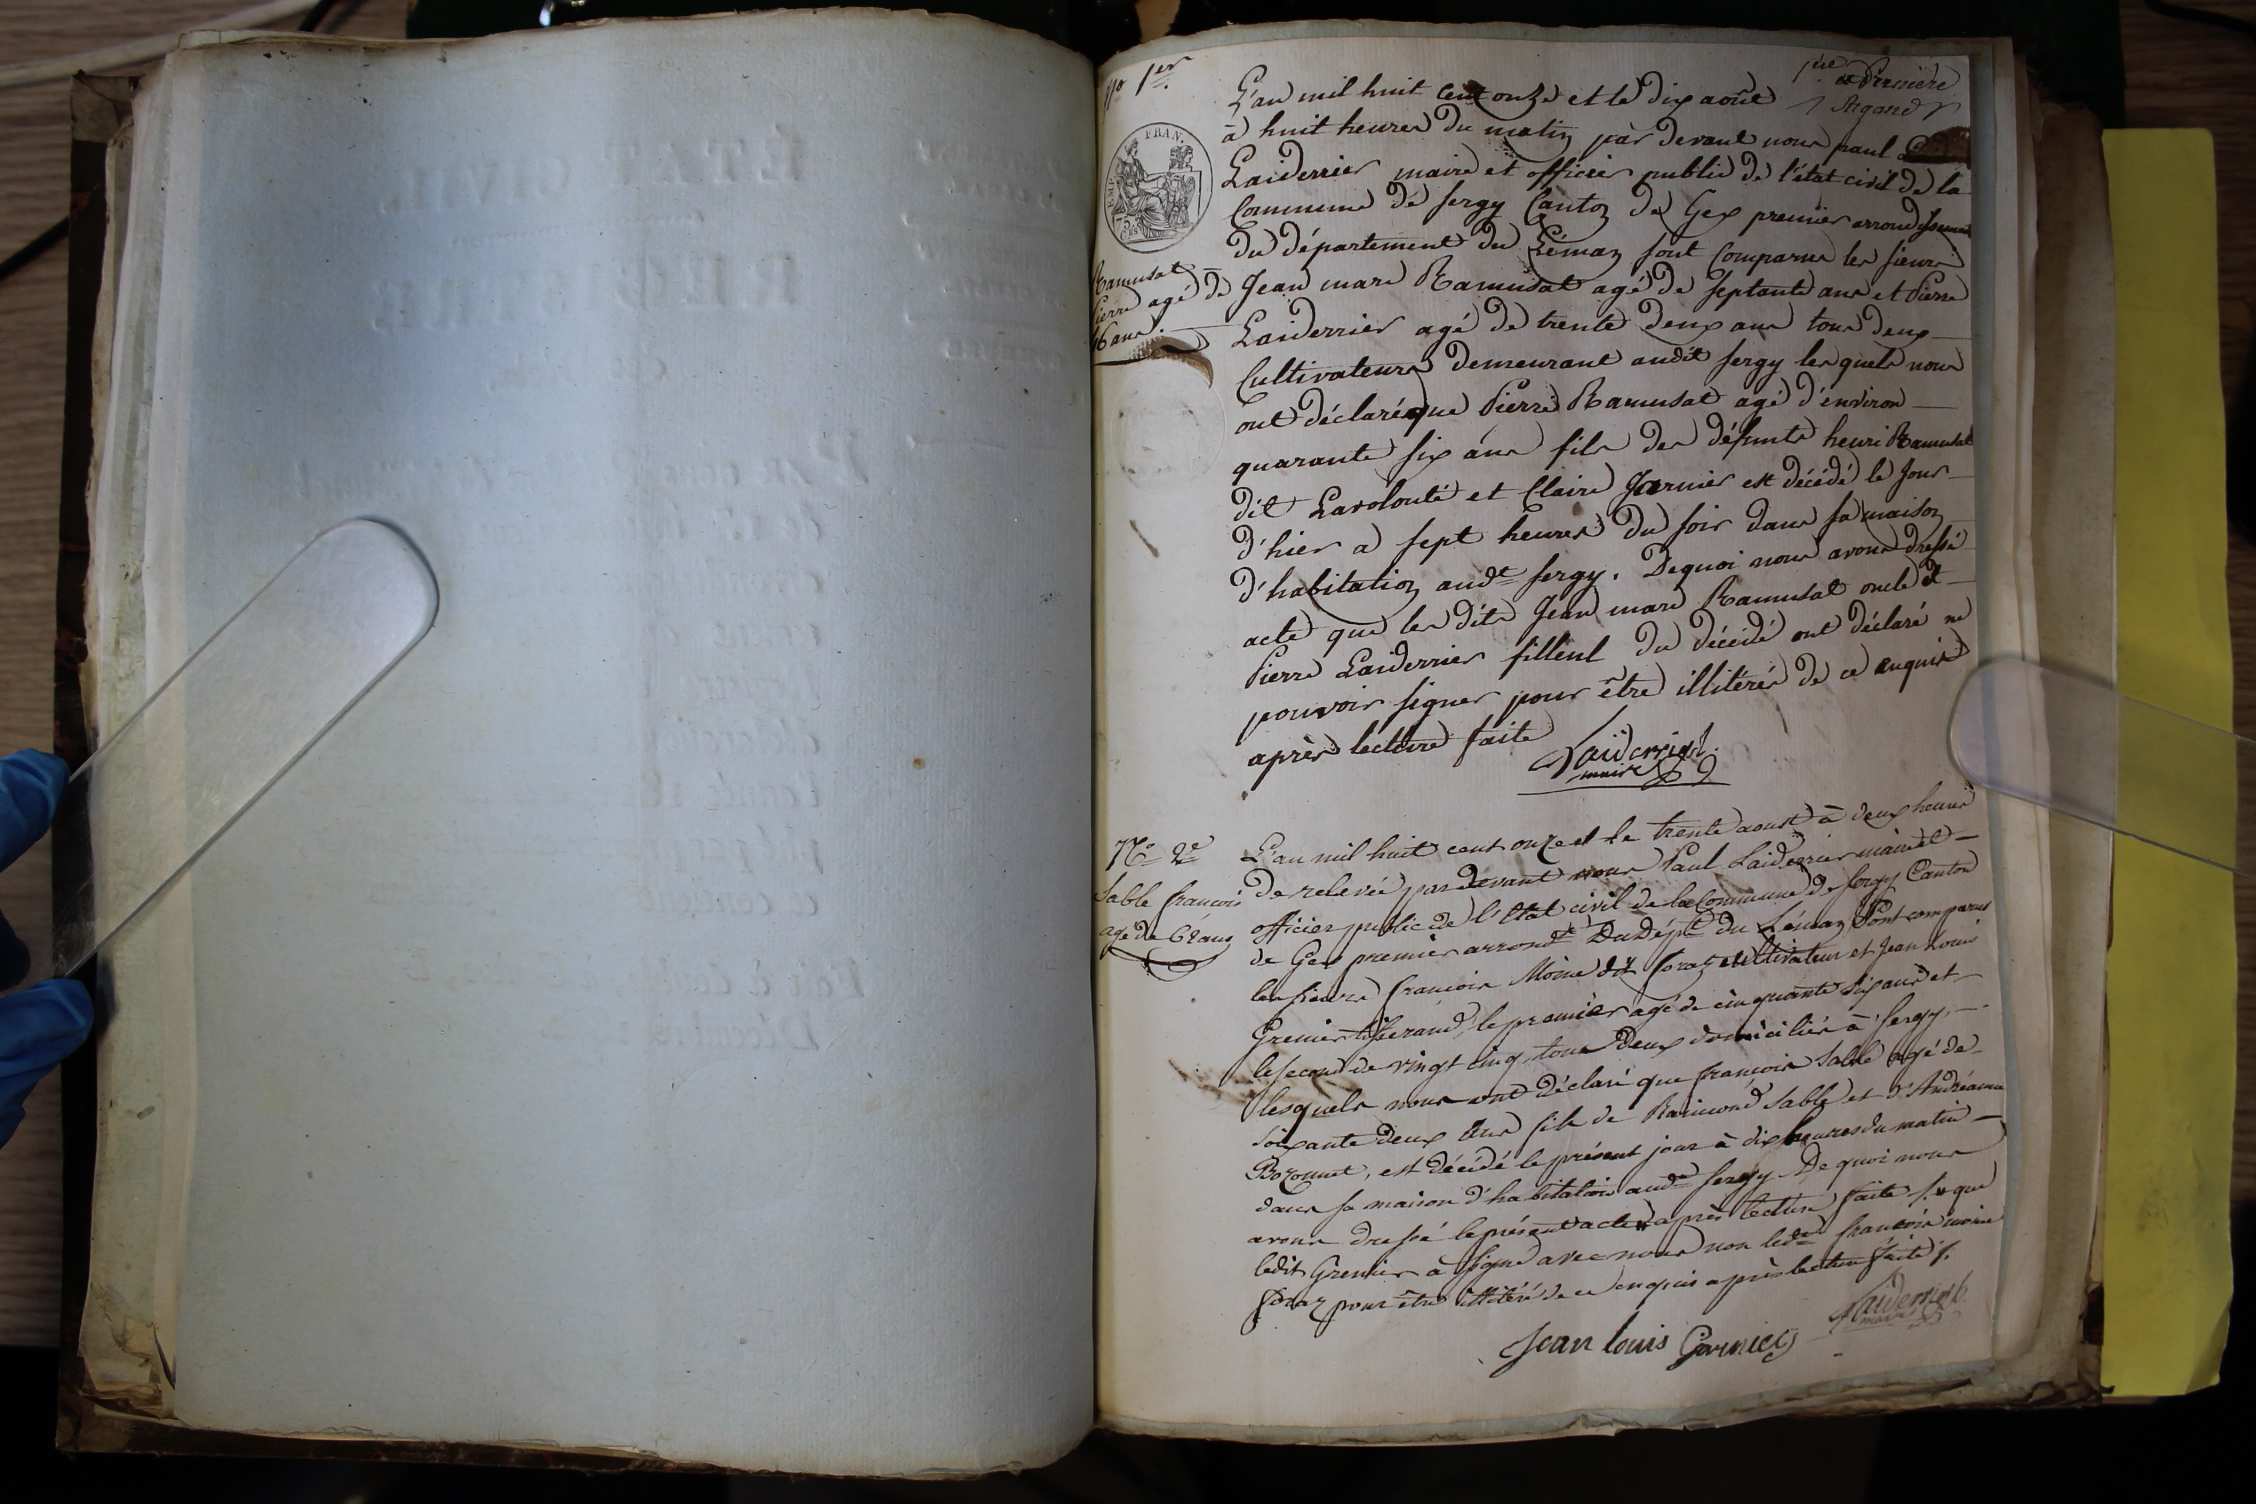 No 1er
1ère et dernière
Argand
L'an mil huit cent onze et le dix août
à huit heures du matin par devant nous paul
Laiderrier maire et officier public de l'état civil de la
Commune de Sergy Canton de Gex premier arrondissement
du département du Léman sont Comparus les sieurs
Jean marc Ramusat agé de septante ans et Pierre
Laiderrier agé de trente deux ans tous deux
Cultivateurs demeurant audit Sergy lesquels nous
ont déclaré que Pierre Ramusat agé d'environ
quarante six ans fils des défunts henri Ramusat
dit Lavolonté et Claire Garnier est décédé le Jour
d'hier a sept heures du soir dans sa maison
d'habitation audt Sergy. Dequoi nous avons dressé
acte que les dits Jean marc Ramusat oncle et
Pierre Laiderrier filleul du décédé ont déclaré ne
pouvoir signer pour être illitérés de ce enquis
après lecture faite
Laiderrier
maire
EMP. FRAN.
75
Cts
Ramusat
Pierre agé de
46 ans.
No 2e
Sable françois
agé de 62 ans
L'an mil huit cent onze et le trente aoust à deux heures
de relevée pardevant nous Paul Laiderrier maire et
officier public de l'Etat civil de la Commune de Sergy Canton
de Gex premier arrondt Du Dépt du Léman Sont comparus
les sieurs francois Moine dit foraz cultivateur et Jean Louis
Grenier tisserand, le premier agé de cinquante six ans et
le second de vingt cinq, tous deux domiciliés à Sergy,
lesquels nous ont déclaré que francois Sable agé de
soixante deux ans fils de Raimond Sable et d'Andréanne
Bozonnet, est décédé le présent jour à dix heures du matin
dans sa maison d'habitation audt Sergy De quoi nous
avons dressé le présent acte après lecture faite que
ledit Grenier à signé avec nous non ledt francois moine
foraz pour être illitéré de ce enquis après lecture faite
Laiderrier
maire
Jean louis Garnier